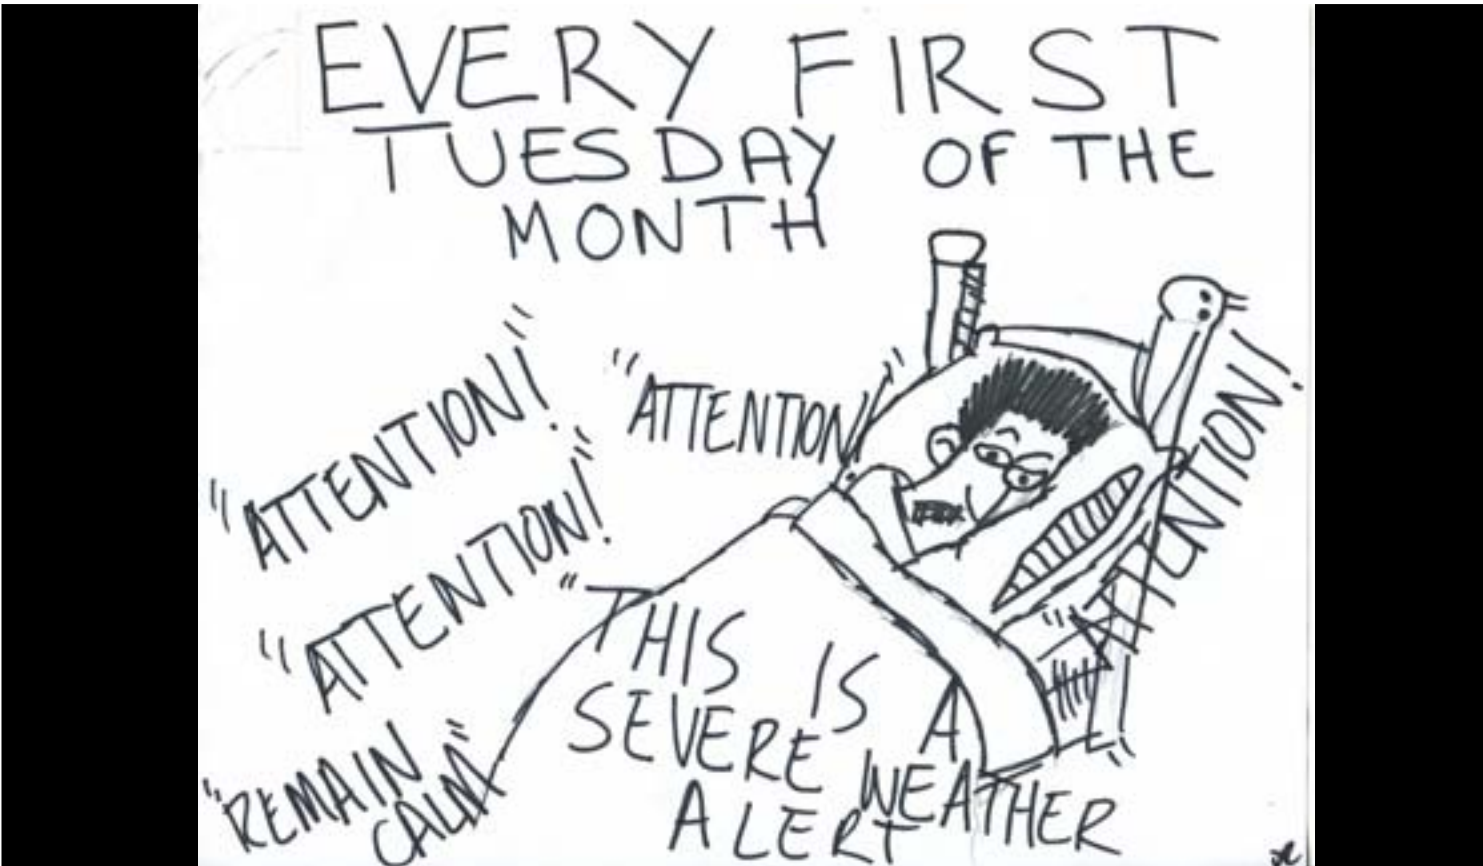 EVERY FIRST
TUESDAY OF THE
MONTH
"ATTENTION!"
"ATTENTION!"
"ATTENTION!"
"ATTENTION!"
"THIS IS A
SEVERE WEATHER
ALERT
"REMAIN
CALM"